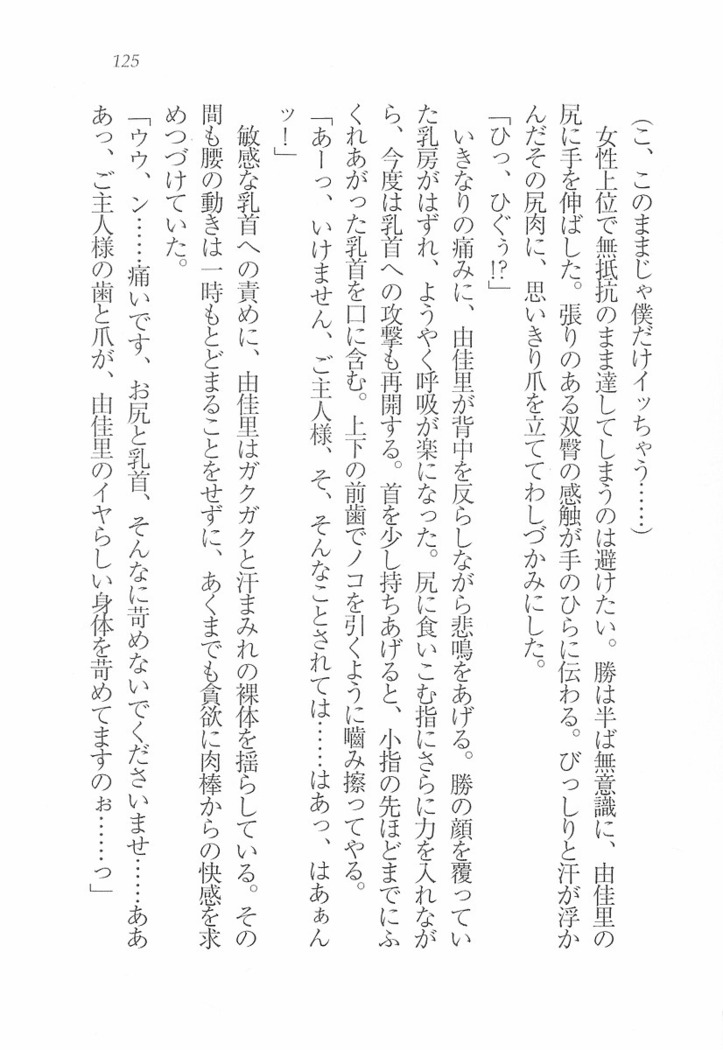 125
(こ、このままじゃ僕だけイッちゃう……)
女性上位で無抵抗のまま達してしまうのは避けたい。勝は半ば無意識に、由佳里の
尻に手を伸ばした。張りのある双臀の感触が手のひらに伝わる。びっしりと汗が浮か
んだその尻肉に、思いきり爪を立ててわしづかみにした。
「ひっ、ひぐぅ!?」
いきなりの痛みに、由佳里が背中を反らしながら悲鳴をあげる。勝の顔を覆ってい
た乳房がはずれ、ようやく呼吸が楽になった。尻に食いこむ指にさらに力を入れなが
ら、今度は乳首への攻撃も再開する。首を少し持ちあげると、小指の先ほどまでにふ
くれあがった乳首を口に含む。上下の前歯でノコを引くように嚙み擦ってやる。
「あーっ、いけません、ご主人様、そ、そんなことされては……はあっ、はあぁん
ッ!」
敏感な乳首への責めに、由佳里はガクガクと汗まみれの裸体を揺らしている。その
間も腰の動きは一時もとどまることをせずに、あくまでも貪欲に肉棒からの快感を求
めつづけていた。
「ウウ、ン……痛いです、お尻と乳首、そんなに苛めないでくださいませ……ああ
あっ、ご主人様の歯と爪が、由佳里のイヤらしい身体を苛めてますのぉ……っ」